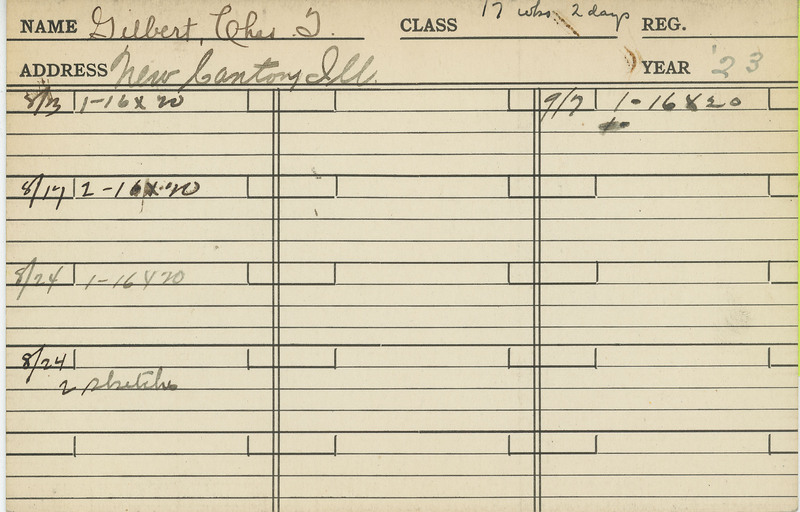 NAME Gilbert, Chas. T. CLASS 17 wks. 2 days REG.
ADDRESS New Canton, Ill. YEAR '23
8/13 1-16x20 9/7 1-16x20
8/17 2-16x20
8/24 1-16x20
8/24
2 sketches